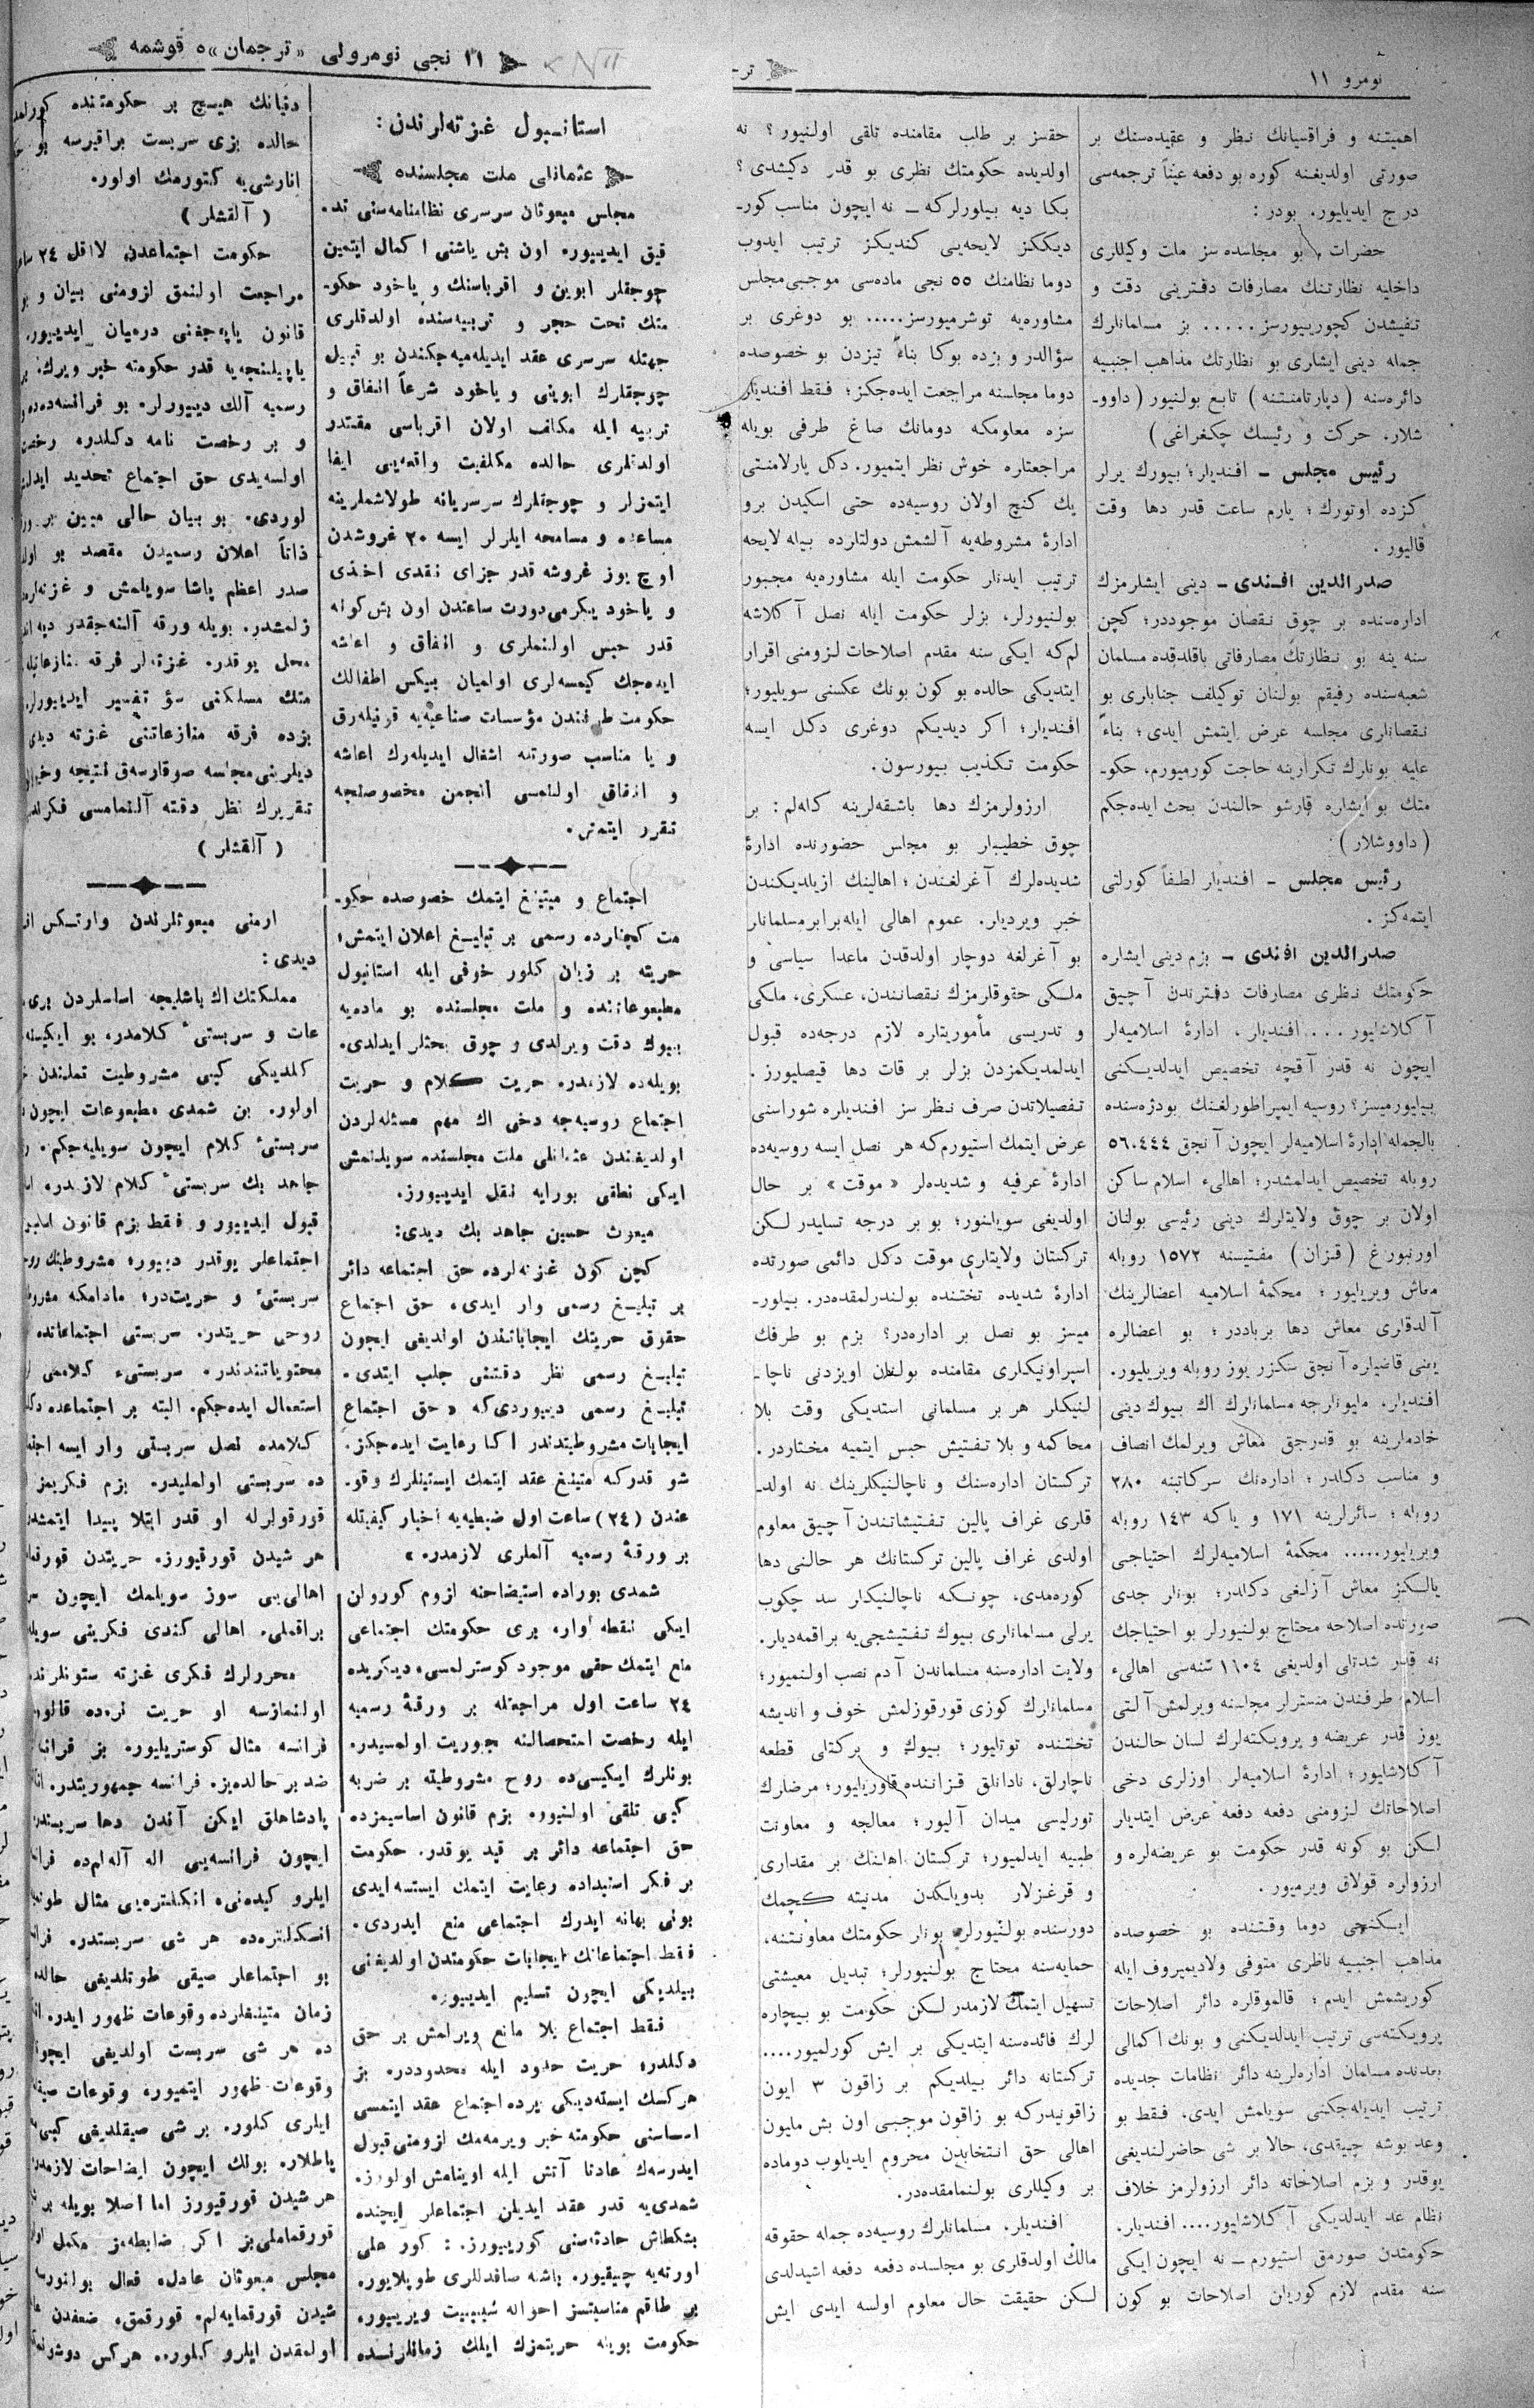 نومرو ١١
اهمیتنه و فراقسیانك نظر و عقیده‌سنك بر
صورتی اولدیغنه كوره بو دفعه عیناً ترجمه‌سی
درج ایدیلیور. بودر:
حضرات، بو مجلسده سز ملت وكیللری
داخلیه نظارتنك مصارفات دفترینی دقت و
تفیشدن كچوریبورسز..... بز مسلمانلرك
جمله دینی ایشلری بو نظارتك مذاهب اجنبیه
دائره‌سنه (دپارتامنتنه) تابع بولنیور (داوو-
شلار، حركت و رئیسك چكغراغی)
رئیس مجلس - افندیلر؛ بیورك یرلر
كزده اوتورك؛ یارم ساعت قدر دها وقت
قالیور.
صدرالدین افندی - دینی ایشلرمزك
اداره‌سنده بر چوق نقصان موجوددر؛ كچن
سنه ینه بو نظارتك مصارفاتی باقلدقده مسلمان
شعبه‌سنده رفیقم بولنان توكیلف جنابلری بو
نقصانلری مجلسه عرض ایتمش ایدی؛ بناءً
علیه بونلرك تكرارینه حاجت كورمیورم، حكو-
متك بو ایشلره قارشو حالندن بحث ایده‌جكم
(داووشلار)
رئیس مجلس - افندیلر لطفاً كورلتی
ایتمه‌كز.
صدرالدین افندی - بزم دینی ایشلره
حكومتك نظری مصارفات دفترندن آچیق
آكلاشلیور... افندیلر، ادارۀ اسلامیه‌لر
ایچون نه قدر آقچه تخصیص ایدلدیكنی
بیلیورمیسز؟ روسیه ایمپراطورلغنك بودژه‌سنده
بالجمله ادارۀ اسلامیه‌لر ایچون آنجق ٥٦٠٤٤٤
روبله تخصیص ایدلمشدر؛ اهالیء اسلام ساكن
اولان بر چوق ولایتلرك دینی رئیسی بولنان
اورنبورغ (قزان) مفتیسنه ١٥٧٢ روبله
معاش ویریلیور؛ محكمۀ اسلامیه اعضالرینك
آلدقلری معاش دها بربادر؛ بو اعضالره
یعنی قاضیلره آنجق سكزر یوز روبله ویریلیور.
افندیلر، ملیونلرجه مسلمانلرك اك بیوك دینی
خادملرینه بو قدرجق معاش ویرلمك انصاف
و مناسب دكلدر؛ اداره‌نك سركاتبنه ٢٨٠
روبله؛ سائرلرینه ١٧١ و یاكه ١٤٣ روبله
ویریلیور..... محكمۀ اسلامیه‌لرك احتیاجی
یالكز معاش آزلغی دكلدر؛ بونلر جدی
صورتده اصلاحه محتاج بولنیورلر بو احتیاجك
نه قدر شدتلی اولدیغی ١٦٠٤ سنه‌سی اهالیء
اسلام طرفندن منسترلر مجلسنه ویرلمش آلتی
یوز قدر عریضه و پرویكته‌لرك لسان حالندن
آكلاشلیور؛ ادارۀ اسلامیه‌لر اوزلری دخی
اصلاحاتك لزومنی دفعه دفعه عرض ایتدیلر
لكن بو كونه قدر حكومت بو عریضه‌لره و
ارزولره قولاق ویرمیور.
ایكنجی دوما وقتنده بو خصوصده
مذاهب اجنبیه ناظری متوفی ولادیمیروف ایله
كوریشمش ایدم؛ قالموقلره دائر اصلاحات
پرویكته‌سی ترتیب ایدلدیكنی و بونك اكمالی
بعدنده مسلمان اداره‌لرینه دائر نظامات جدیده
ترتیب ایدیله‌جكنی سویلمش ایدی. فقط بو
وعد بوشه چیقدی، حالا بر شی حاضرلندیغی
یوقدر و بزم اصلاحاته دائر ارزولرمز خلاف
نظام عد ایدلدیكی آكلاشلیور.... افندیلر.
حكومتدن صورمق استیورم ـ نه ایچون ایكی
سنه مقدم لازم كوریلن اصلاحات بو كون
حقسز بر طلب مقامنده تلقی اولنیور؟ نه
اولدیده حكومتك نظری بو قدر دكیشدی؟
بكا دیه بیلورلركه ـ نه ایچون مناسب كور-
دیككز لایحه‌یی كندیكز ترتیب ایدوب
دوما نظامنك ٥٥ نجی ماده‌سی موجبی مجلس
مشاوره‌یه توشرمیورسز..... بو دوغری بر
سؤالدر و بزده بوكا بناءً تیزدن بو خصوصده
دوما مجلسنه مراجعت ایده‌جكز؛ فقط افندیلر
سزه معلومكه دومانك صاغ طرفی بویله
مراجعتلره خوش نظر ایتمیور. دكل پارلامنتی
یك كنچ اولان روسیه‌ده حتی اسكیدن برو
ادارۀ مشروطه‌یه آلشمش دولتلرده بیله لایحه
ترتیب ایدنلر حكومت ایله مشاوره‌یه مجبور
بولنیورلر، بزلر حكومت ایله نصل آكلاشه
لم‌كه ایكی سنه مقدم اصلاحات لزومنی اقرار
ایتدیكی حالده بو كون بونك عكسنی سویلیور؛
افندیلر؛ اكر دیدیكم دوغری دكل ایسه
حكومت تكذیب بیورسون.
ارزولرمزك دها باشقه‌لرینه كله‌لم: بر
چوق خطیبلر بو مجلس حضورنده ادارۀ
شدیده‌لرك آغرلغندن؛ اهالینك ازیلدیكندن
خبر ویردیلر. عموم اهالی ایله برابر مسلمانلر
بو آغرلغه دوچار اولدقدن ماعدا سیاسی و
ملكی حقوقلرمزك نقصانندن، عسكری، ملكی
و تدریسی مأموریتلره لازم درجه‌ده قبول
ایدلمدیكمزدن بزلر بر قات دها قیصلیورز.
تفصیلاتدن صرف نظر سز افندیلره شوراسنی
عرض ایتمك استیورم‌كه هر نصل ایسه روسیه‌ده
ادارۀ عرفیه و شدیده‌لر «موقت» بر حال
اولدیغی سویلنور؛ بو بر درجه تسلیدر لكن
تركستان ولایتلری موقت دكل دائمی صورتده
ادارۀ شدیده تختنده بولندرلمقده‌در. بیلور-
میسز بو نصل بر اداره‌در؟ بزم بو طرفك
اسپراونیكلری مقامنده بولنان اویزدنی ناچا-
لنیكلر هر بر مسلمانی استدیكی وقت بلا
محاكمه و بلا تفتیش حبس ایتمیه مختاردر.
تركستان اداره‌سنك و ناچالنیكلرینك نه اولد-
قلری غراف پالین تفتیشاتندن آچیق معلوم
اولدی غراف پالین تركستانك هر حالنی دها
كوره‌مدی، چونكه ناچالنیكلر سد چكوب
یرلی مسلمانلری بیوك تفتیشجی‌یه براقمه‌دیلر.
ولایت اداره‌سنه مسلماندن آدم نصب اولنمیور؛
مسلمانلرك كوزی قورقوزلمش خوف و اندیشه
تختنده توتلیور؛ بیوك و بركتلی قطعه
ناچارلق، نادانلق قزاننده قاوریلیور؛ مرضلرك
تورلیسی میدان آلیور؛ معالجه و معاونت
طبیه ایدلمیور؛ تركستان اهلنك بر مقداری
و قرغزلار بدویلكدن مدنیته كچمك
دورسنده بولنیورلر. بونلر حكومتك معاونتنه،
حمایه‌سنه محتاج بولنیورلر؛ تبدیل معیشتی
تسهیل ایتمك لازمدر لكن حكومت بو بیچاره
لرك فائده‌سنه ایتدیكی بر ایش كورلمیور....
تركستانه دائر بیلدیكم بر زاقون ٣ ایون
زاقونیدركه بو زاقون موجبی اون بش ملیون
اهالی حق انتخابدن محروم ایدیلوب دوماده
بر وكیللری بولنمامقده‌در.
افندیلر. مسلمانلرك روسیه‌ده جمله حقوقه
مالك اولدقلری بو مجلسده دفعه دفعه اشیدلدی
لكن حقیقت حال معلوم اولسه ایدی ایش
١١ نجی نومرولی «ترجمان» ه قوشمه
استانبول غزته‌لرندن:
عثمانلی ملت مجلسنده
مجلس مبعوثان سرسری نظامنامه‌سنی تد-
قیق ایدیبور. اون بش یاشنی اكمال ایتمین
چوجقلر ابوین و اقرباسنك و یاخود حكو-
متك تحت حجر و تربیه‌سنده اولدقلری
جهتله سرسری عقد ایدیله‌میه‌جكندن بو قبیل
چوجقلرك ابوینی و یاخود شرعاً انفاق و
تربیه ایله مكلف اولان اقرباسی مقتدر
اولدقلری حالده مكلفیت واقعه‌یی ایفا
ایتمزلر و چوجقلرك سرسریانه طولاشملرینه
مساعده و مسامحه ایلرلر ایسه ٢٠ غروشدن
اوچ یوز غروشه قدر جزای نقدی اخذی
و یاخود یكرمی دورت ساعتدن اون بش كونه
قدر حبس اولنملری و انفاق و اعاشه
ایده‌جك كیمسه‌لری اولمیان بیكس اطفالك
حكومت طرفندن مؤسسات صناعیه‌یه قوییله‌رق
و یا مناسب صورتله اشغال ایدیله‌رك اعاشه
و انفاق اولنمسی انجمن مخصوصنجه
تقرر ایتمش.
اجتماع و میتینغ ایتمك خصوصده حكو-
مت كچنلرده رسمی بر تبلیغ اعلان ایتمش؛
حریته بر زیان كلور خوفی ایله استانبول
مطبوعاتنده و ملت مجلسنده بو ماده‌یه
بیوك دقت ویرلدی و چوق بحثلر ایدلدی.
بویله‌ده لازمدر. حریت كلام و حریت
اجتماع روسیه‌جه دخی اك مهم مسئله‌لردن
اولدیغندن عثمانلی ملت مجلسنده سویلنمش
ایكی نطقی بورایه نقل ایدیبورز.
مبعوث حسین جاهد بك دیدی:
كچن كون غزته‌لرده حق اجتماعه دائر
بر تبلیغ رسمی وار ایدی. حق اجتماع
حقوق حریتك ایجاباتندن اولدیغی ایچون
تبلیغ رسمی نظر دقتمی جلب ایتدی.
تبلیغ رسمی دیبوردی‌كه «حق اجتماع
ایجابات مشروطیتدندر اكا رعایت ایده‌جكز.
شو قدركه متینغ عقد ایتمك ایستینلرك وقو-
عندن (٢٤) ساعت اول ضبطیه‌یه اخبار كیفیتله
بر ورقۀ رسمیه آلملری لازمدر.»
شمدی بوراده استیضاحنه لزوم كورولن
ایكی نقطه وار. بری حكومتك اجتماعی
منع ایتمك حقی موجود كوسترلمسی، دیكریده
٢٤ ساعت اول مراجعتله بر ورقۀ رسمیه
ایله رخصت استحصالنه مجبوریت اولمسیدر.
بونلرك ایكیسی‌ده روح مشروطیته بر ضربه
كبی تلقی اولنیور. بزم قانون اساسیمزده
حق اجتماعه دائر بر قید یوقدر. حكومت
بر فكر استبداده رعایت ایتمك ایستسه ایدی
بونی بهانه ایدرك اجتماعی منع ایدردی.
فقط اجتماعاتك ایجابات حكومتدن اولدیغنی
بیلدیكی ایچون تسلیم ایدیبور.
فقط اجتماع بلا مانع ویرلمش بر حق
دكلدر؛ حریت حدود ایله محدوددر. بز
هركسك ایسته‌دیكی یرده اجتماع عقد ایتمسی
اساسنی حكومته خبر ویرمه‌مك لزومنی قبول
ایدرسه‌ك عادتا آتش ایله اوینامش اولورز.
شمدی‌یه قدر عقد ایدیلن اجتماعلر ایچنده
بشكطاش حادثه‌سنی كوریبورز.: كور علی
اورته‌یه چیقیور. باشنه صافدللری طوپلایور.
بر طاقم مناسبتسز احواله سببیت ویریبور.
حكومت بویله حریتمزك ایلك زمانلرنده
دنیانك هیچ بر حكومتنده
حالده بزی سربست براقیرسه بو
انارشی‌یه كتورمك اولور.
(آلقشلر)
حكومت اجتماعدن لااقل ٢٤
مراجعت اولنمق لزومنی بیان و
قانون یاپه‌جغنی درمیان ایدیبور.
یاپیلنجه‌یه قدر حكومته خبر ویرك،
رسمیه آلك دیبورلر. بو فرانسه‌ده‌ده
و بر رخصت نامه دكلدر. رخصت
اولسه‌یدی حق اجتماع تحدید
لوردی. بو بیان حالی مبین بر
ذاتاً اعلان رسمیدن مقصد بو
صدر اعظم پاشا سویلمش و
زلمشدر. بویله ورقه آلنه‌جقدر
محل یوقدر. غزته‌لر فرقه
متك مسلكنی سؤ تفسیر ایدیبورلر.
بزده فرقه منازعاتنی غزته
دیلرینی مجلسه صوقارسه‌ق نتیجه
تقریرك نظر دقته آلنمامسی
(آلقشلر)
ارمنی مبعوثلرندن وارتكس
دیدی:
مملكتك اك باشلیجه اساسلردن بری
عات و سربستیٔ كلامدر. بو
كلدیكی كبی مشروطیت تملندن
اولور. بن شمدی مطبوعات ایچون
سربستیٔ كلام ایچون سویلیه‌جكم.
جاهد بك سربستیٔ كلام لازمدر.
قبول ایدیبور و فقط بزم قانون
اجتماعلر یوقدر دیبور؛ مشروطیتك
سربستیٔ و حریت‌در؛ مادامكه
روحی حریتدر. سربستی اجتماعاتده
محتویاتندندر. سربستیء كلاممی
استعمال ایده‌جكم. البته بر اجتماعده
كلامده نصل سربستی وار ایسه
ده سربستی اولملیدر. بزم فكریمز
قورقولرله او قدر ابتلا پیدا
هر شیدن قورقیورز. حریتدن
اهالی‌یی سوز سویلمك ایچون
براقملی. اهالی كندی فكرینی
محررلرك فكری غزته ستونلرنده
اولنمازسه او حریت نره‌ده
فرانسه مثال كوستریلیور. بز
ضد بر حالده‌یز. فرانسه جمهوریتدر.
پادشاهلق ایكن آندن دها
ایچون فرانسه‌یی اله آله‌لم‌ده
ایلرو كیده‌نی، انكلتره‌یی مثال
انكلتره‌ده هر شی سربستدر.
بو اجتماعلر صیقی طوتلدیغی
زمان متینغلرده وقوعات ظهور ایدر.
ده هر شی سربست اولدیغی
وقوعات ظهور ایتمیور. وقوعات
ایلری كلور. بر شی صیقلدیغی
پاطلار. بونك ایچون ایضاحات
هر شیدن قورقیورز اما اصلا بویله
قورقماملی‌یز اكر ضابطه‌مز مكمل
مجلس مبعوثان عادل، فعال
شیدن قورقمایه‌لم. قورقمق، ضعفدن
اولمقدن ایلرو كلور.. هركس